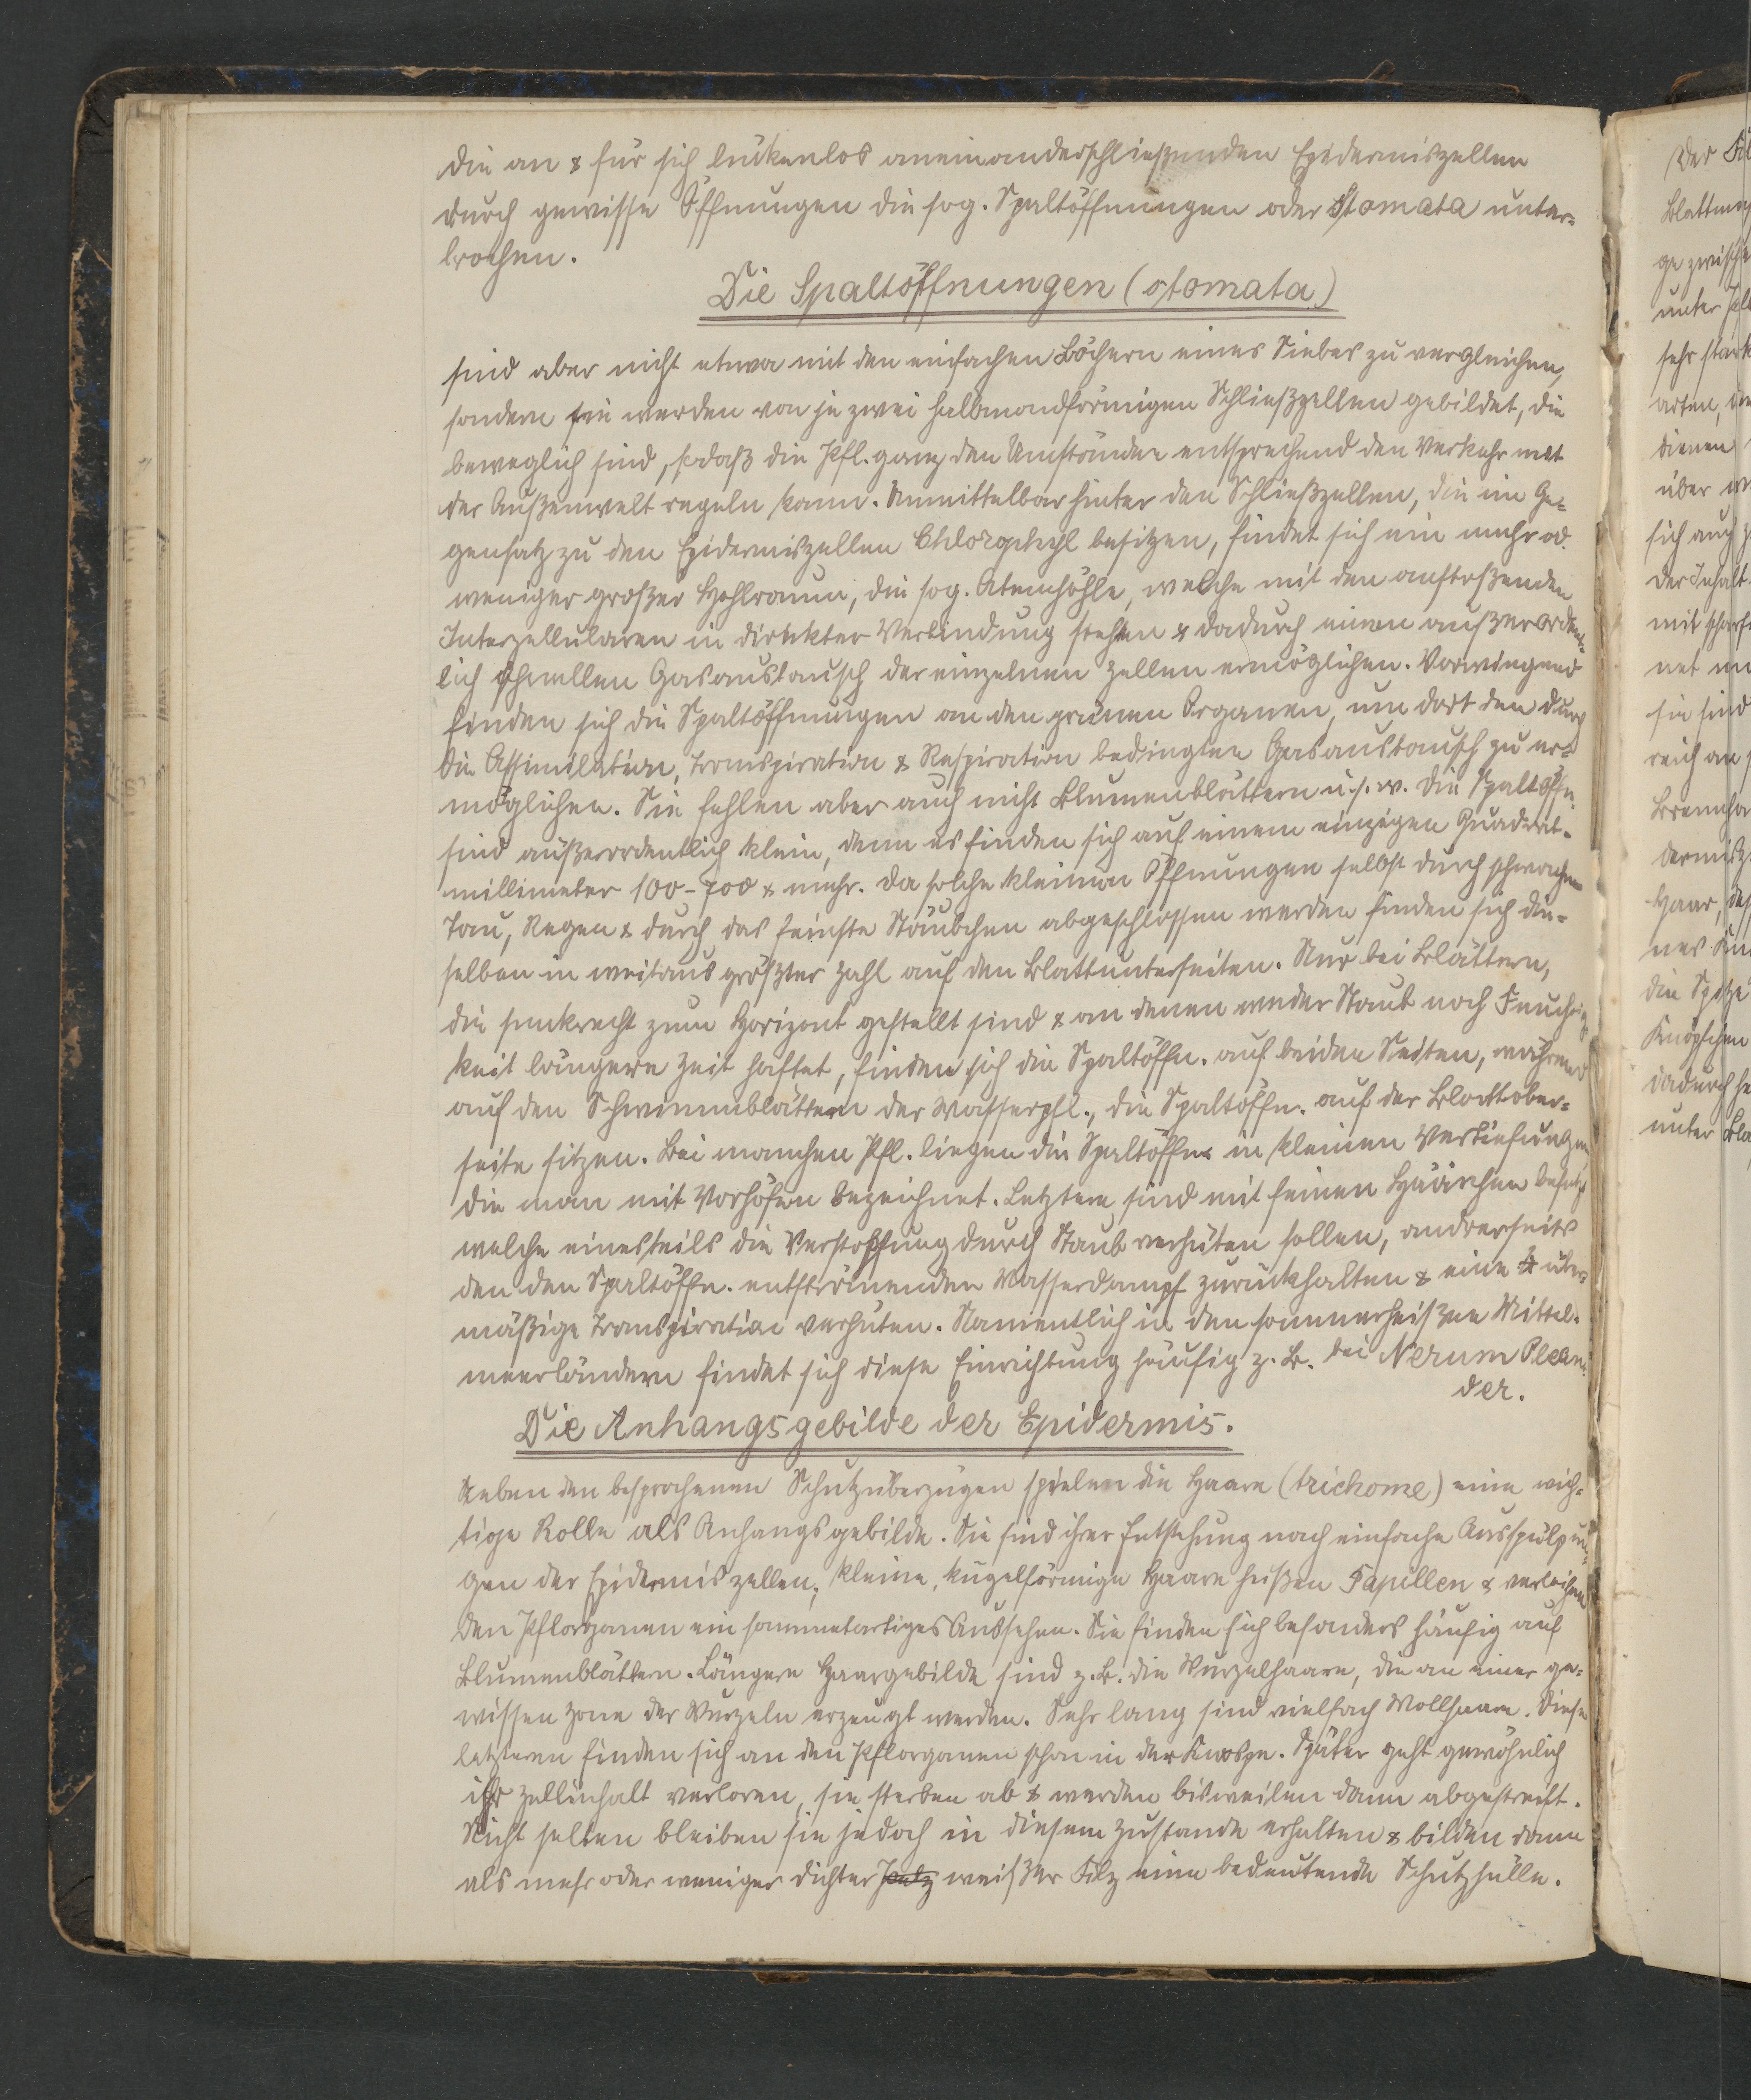 die an & für sich lückenlos aneinanderschließenden Epidermiszellen
durch gewisse Öffnungen die sog. Spaltöffnungen oder Stomata unter-
brochen.
Die Spaltöffnungen (stomata)
sind aber nicht etwa mit den einfachen Löchern eines Siebes zu vergleichen,
sondern sie werden von je zwei halbmondförmigen Schließzellen gebildet, die
beweglich sind, sodaß die Pfl. ganz den Umständen entsprechend den Verkehr mit
der Außenwelt regeln kann. Unmittelbar hinter den Schließzellen, die im Ge-
gensatz zu den Epidermiszellen Chlorophyl besitzen, findet sich ein mehr od.
weniger großer Hohlraum, die sog. Atemhöhle, welche mit den anstoßenden
Interzellularen in direkter Verbindung stehen & dadurch einen außerordent-
lich schnellen Gasaustausch der einzelnen Zellen ermöglichen. Vorwiegend
finden sich die Spaltöffnungen an den grünen Organen, um dort den durch
die Assimilation, Transpiration & Respiration bedingten Gasaustausch zu er-
möglichen. Sie fehlen aber auch nicht Blumenblättern u.s.w. Die Spaltöffn.
sind außerordentlich klein, denn es finden sich auf einem einzigen Quadrat-
millimeter 100-700 & mehr. Da solche kleinen Öffnungen selbst durch schwachen
Tau, Regen & durch das feinste Stäubchen abgeschlossen werden finden sich die-
selben in weitaus größter Zahl auf den Blattunterseiten. Nur bei Blättern,
die senkrecht zum Horizont gestellt sind & an denen weder Staub noch Feuchtig-
keit längere Zeit haftet, finden sich die Spaltöffn. auf beiden Seiten, während
auf den Schwimmblättern der Wasserpfl., die Spaltöffn. auf der Blattober-
seite sitzen. Bei manchen Pfl. liegen die Spaltöffn. in kleinen Vertiefungen
die man mit Vorhöfen bezeichnet. Letztere sind mit feinen Häärchen besetzt
welche einesteils die Verstopfung durch Staub verhüten sollen, andrerseits
den den Spaltöffn. entströmenden Wasserdampf zurückhalten & eine über-
mäßige Transpiration verhüten. Namentlich in den sommerheißen Mittel-
meerländern findet sich diese Einrichtung häufig z. B. bei Nerum Olean-
der.
Die Anhangsgebilde der Epidermis.
Neben den besprochenen Schutzüberzügen spielen die Haare (trichome) eine wich-
tige Rolle als Anhangsgebilde. Sie sind ihrer Entstehung nach einfache Ausstülpun-
gen der Epidermiszellen; kleine, kugelförmige Haare heißen Papillen & verleihen
den Pflorganen ein sammetartiges Aussehen. Sie finden sich besonders häufig auf
Blumenblättern. Längere Haargebilde sind z. B. die Wurzelhaare, die an einer ge-
wissen Zone der Wurzeln erzeugt werden. Sehr lang sind vielfach Wollhaare. Diese
letzteren finden sich an den Pflorganen schon in der Knospe. Später geht gewöhnlich
ihr Zellinhalt verloren, sie sterben ab & werden bisweilen dann abgestreift.
Nicht selten bleiben sie jedoch in diesem Zustande erhalten & bilden dann
als mehr oder weniger dichter Pelz weißer Filz eine bedeutende Schutzhülle.
Der
ge zwische
unter
sehr stark
arten,
dienen
über
sich auch
der Inhalt
mit scharf
net
sie sind
reich an
Haar,
die Spitze
Knöpfchen
dadurch
unter